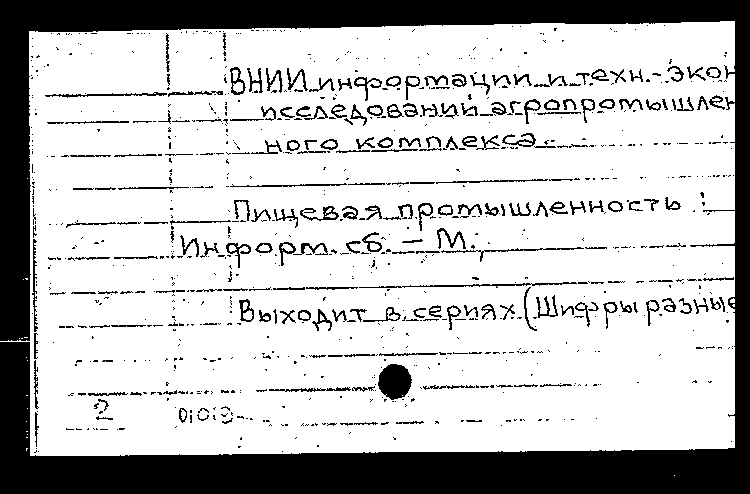 ВНИИ информации и техн.-экон
исследований агропромышлен
ного комплекса.
Пищевая промышленность :
Информ. сб. – М.,
Выходит в сериях (Шифры разные
2